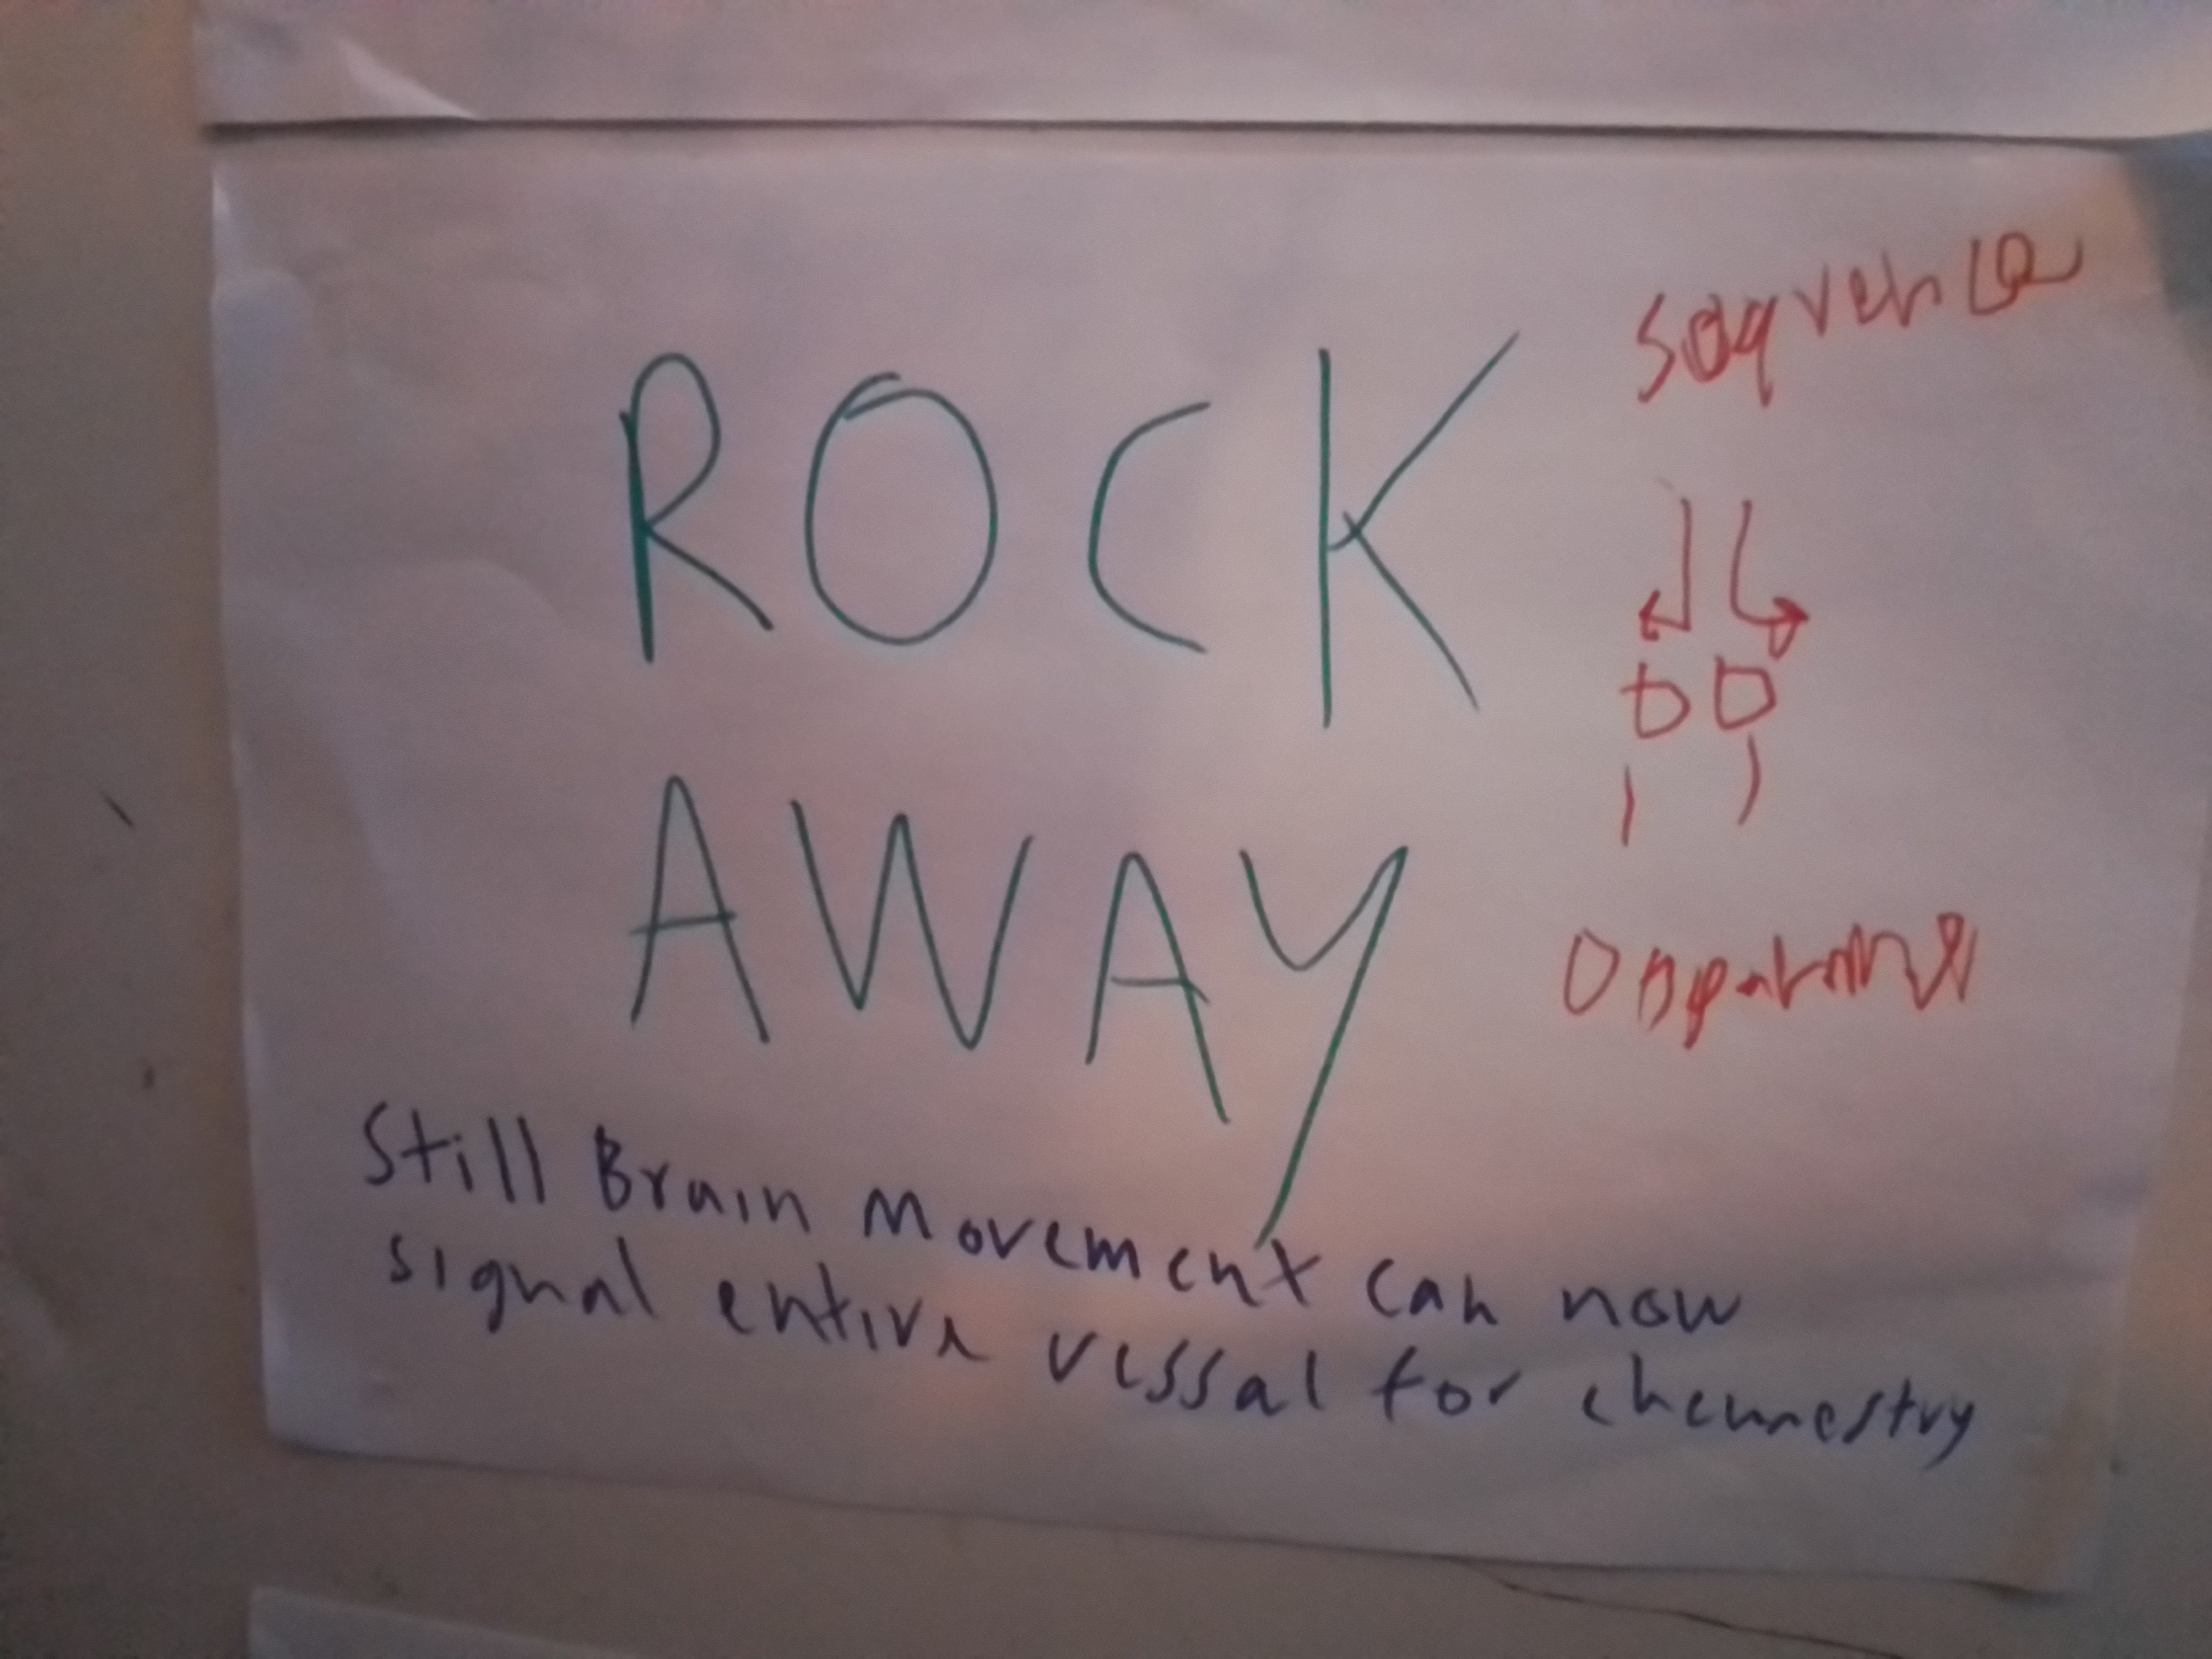 ROCK
AWAY
Still Brain movement can now
signal entire vessal for chemestry
Seqvence